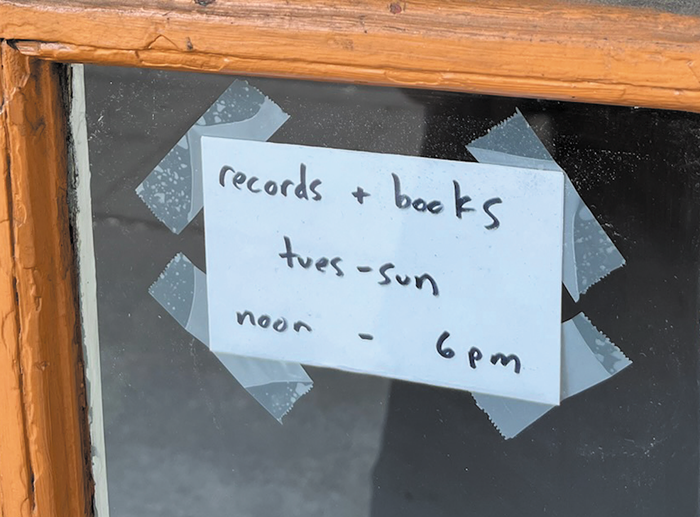 records + books
tues - sun
noon - 6pm